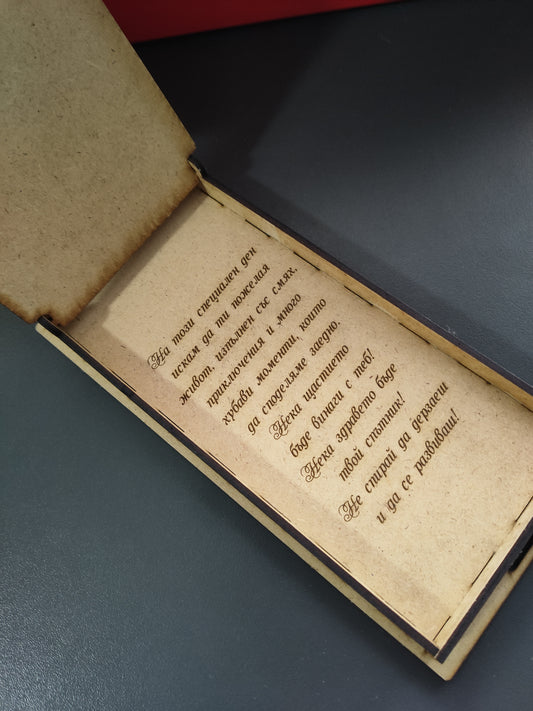 На този специален ден
искам да ти пожелая
живот, изпълнен със смях,
приключения и много
хубави моменти, които
да споделяме заедно.
Нека щастието
бъде винаги с теб!
Нека здравето бъде
твой спътник!
Не спирай да дерзаеш
и да се развиваш!